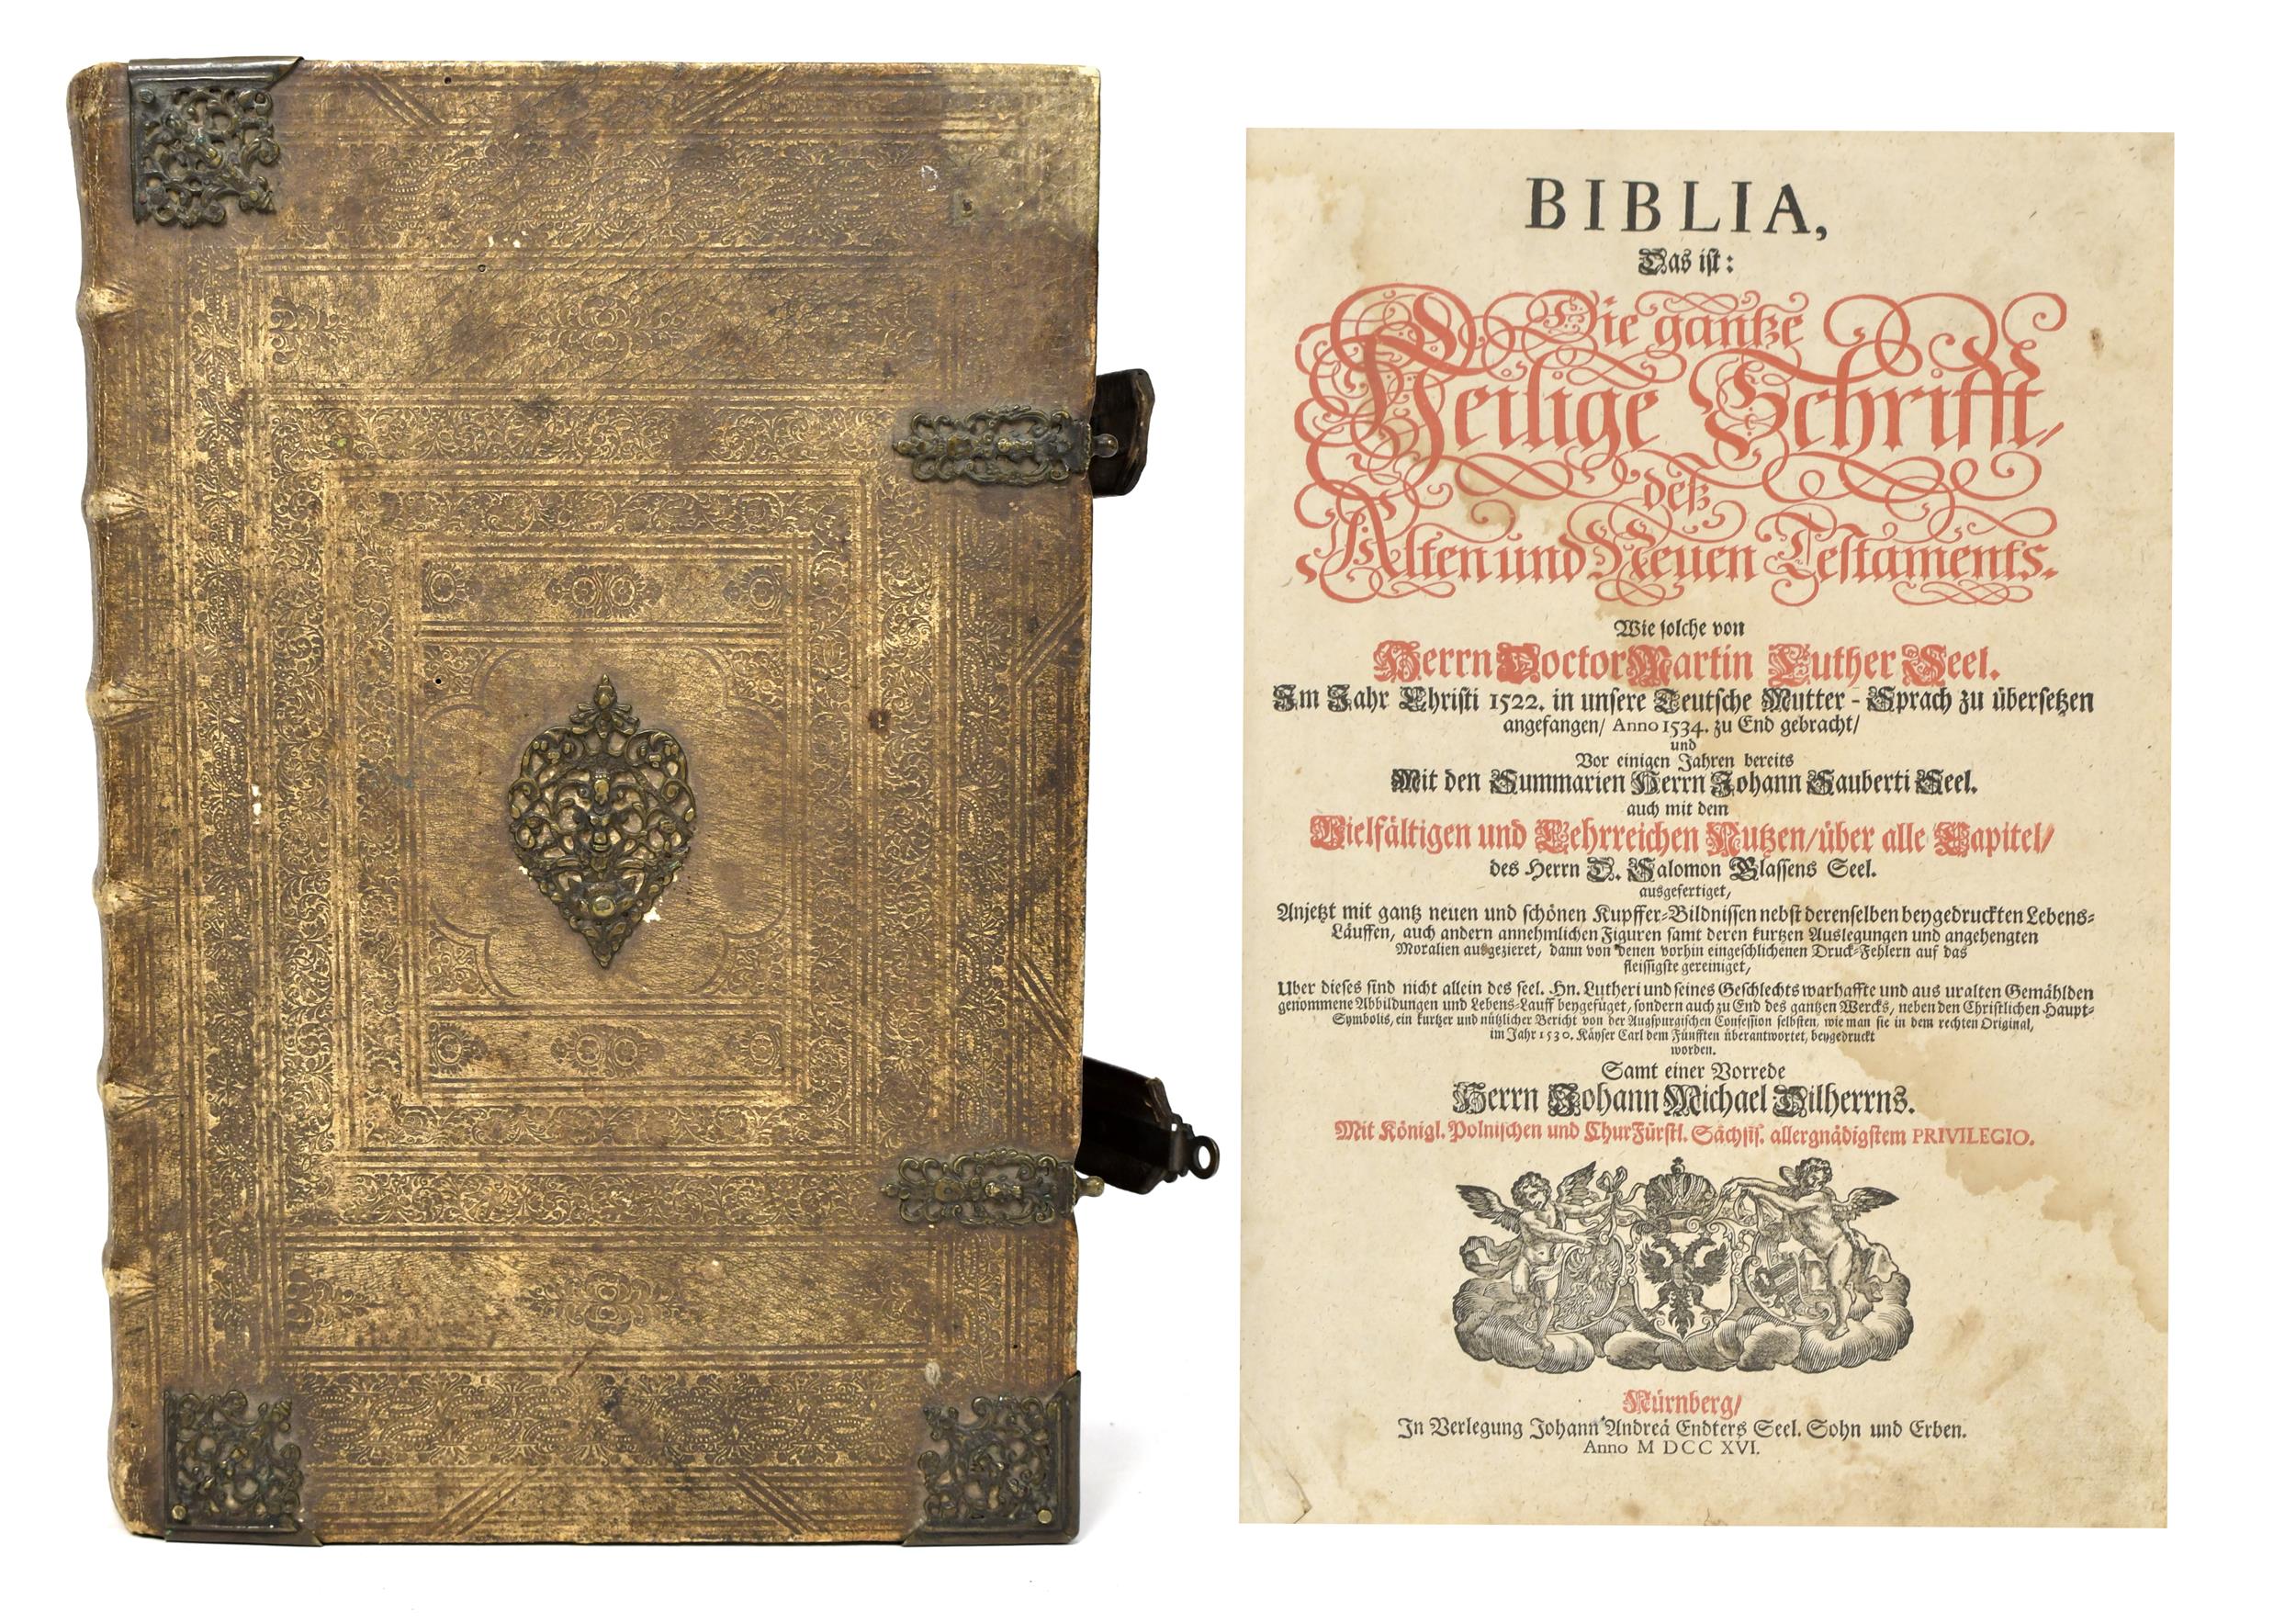 BIBLIA,
Das ist:
Die gantze
Heilige Schrifft,
deß
Alten und Neuen Testaments.
Wie solche von
Herrn Doctor Martin Luther Seel.
Im Jahr Christi 1522. in unsere Teutsche Mutter-Sprach zu übersetzen
angefangen/ Anno 1534. zu End gebracht/
und
Vor einigen Jahren bereits
Mit den Summarien Herrn Johann Sauberti Seel.
auch mit dem
Vielfältigen und Lehrreichen Nutzen/über alle Capitel/
des Herrn D. Salomon Glassens Seel.
ausgefertiget,
Anjetzt mit gantz neuen und schönen Kupffer-Bildnissen nebst derenselben beygedruckten Lebens-
Läuffen, auch andern annehmlichen Figuren samt deren kurtzen Auslegungen und angehengten
Moralien ausgezieret, dann von denen vorhin eingeschlichenen Druck-Fehlern auf das
fleissigste gereiniget,
Uber dieses sind nicht allein des seel. Hn. Lutheri und seines Geschlechts warhaffte und aus uralten Gemählden
genommene Abbildungen und Lebens-Lauff beygefüget, sondern auch zu End des gantzen Wercks, neben den Christlichen Haupt-
Symbolis, ein kurtzer und nützlicher Bericht von der Augspurgischen Confession selbsten, wie man sie in dem rechten Original,
im Jahr 1530. Käyser Carl dem Fünfften überantwortet, beygedruckt
worden.
Samt einer Vorrede
Herrn Johann Michael Dilherrns.
Mit Königl. Polnischen und ChurFürstl. Sächsis. allergnädigstem PRIVILEGIO.
Nürnberg/
In Verlegung Johann Andreä Endters Seel. Sohn und Erben.
Anno M DCC XVI.